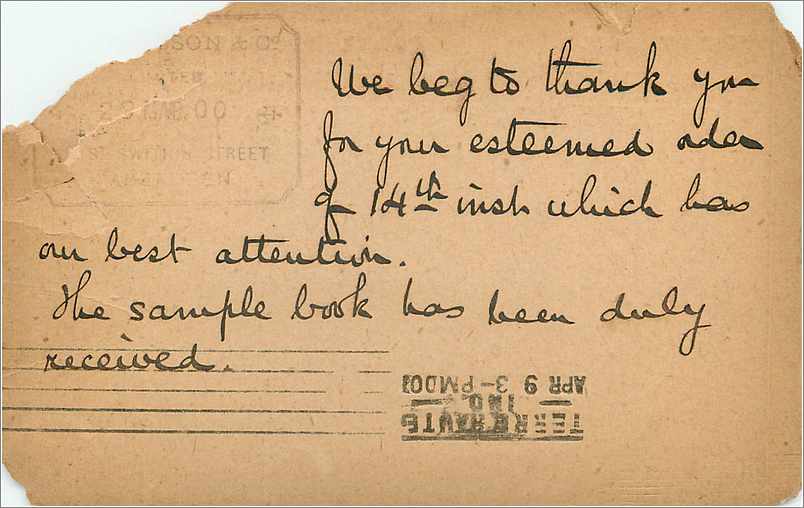 SON & Co
STREET
We beg to thank you
for your esteemed order
of 14th inst which has
our best attention.
The sample book has been duly
received.
APR 9 3-PM
IND.
TERRE HAUTE